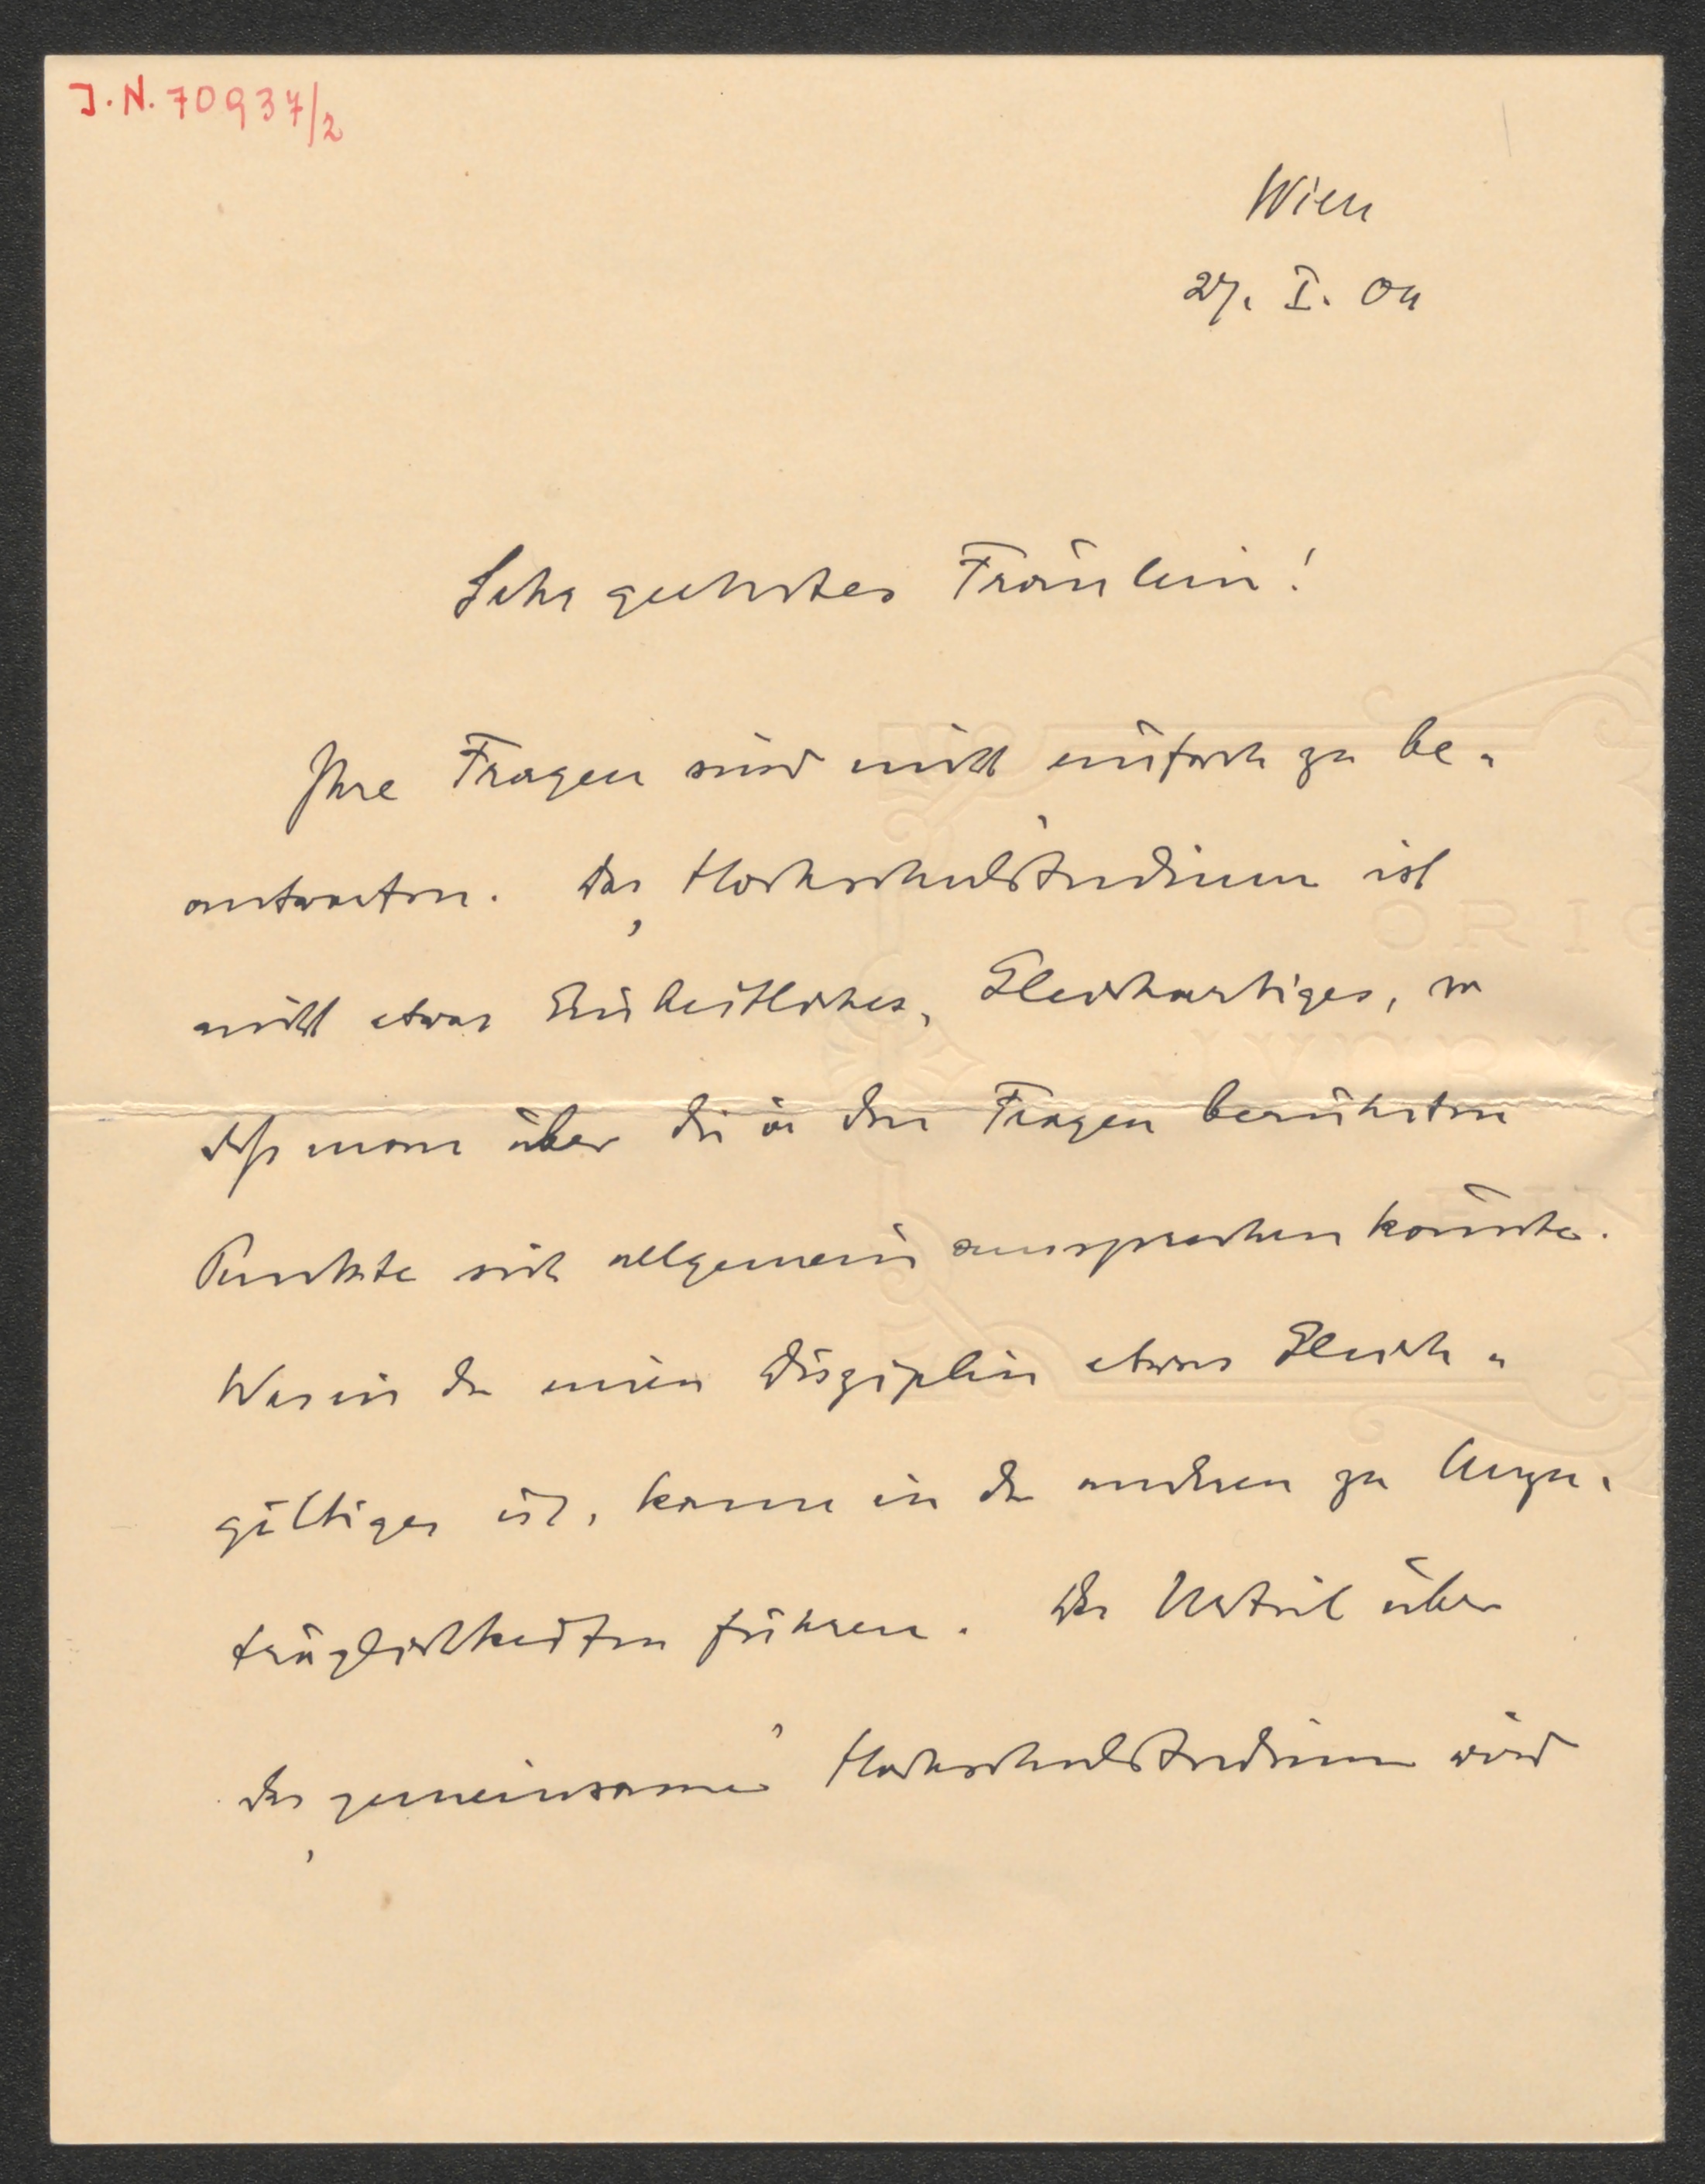 J.N. 70937/2
Wien
27. I. 04
Sehr geehrtes Fräulein!
Ihre Fragen sind nicht einfach zu be-
antworten. Das ‚Hochschulstudium‘ ist
nicht etwas Einheitliches, Gleichartiges, so
daß man über die in den Fragen berührten
Punkte sich allgemein aussprechen könnte.
Was in der einen Disziplin etwas Gleich-
giltiges ist, kann in der anderen zu Unzu-
träglichkeiten führen. Das Urteil über
das ‚gemeinsame‘ Hochschulstudium wird
ORIG